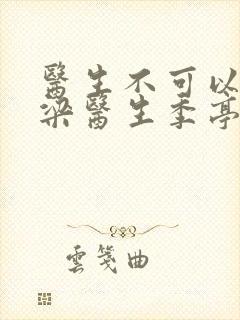 醫生不可以
梁醫生季亭
雲箋曲